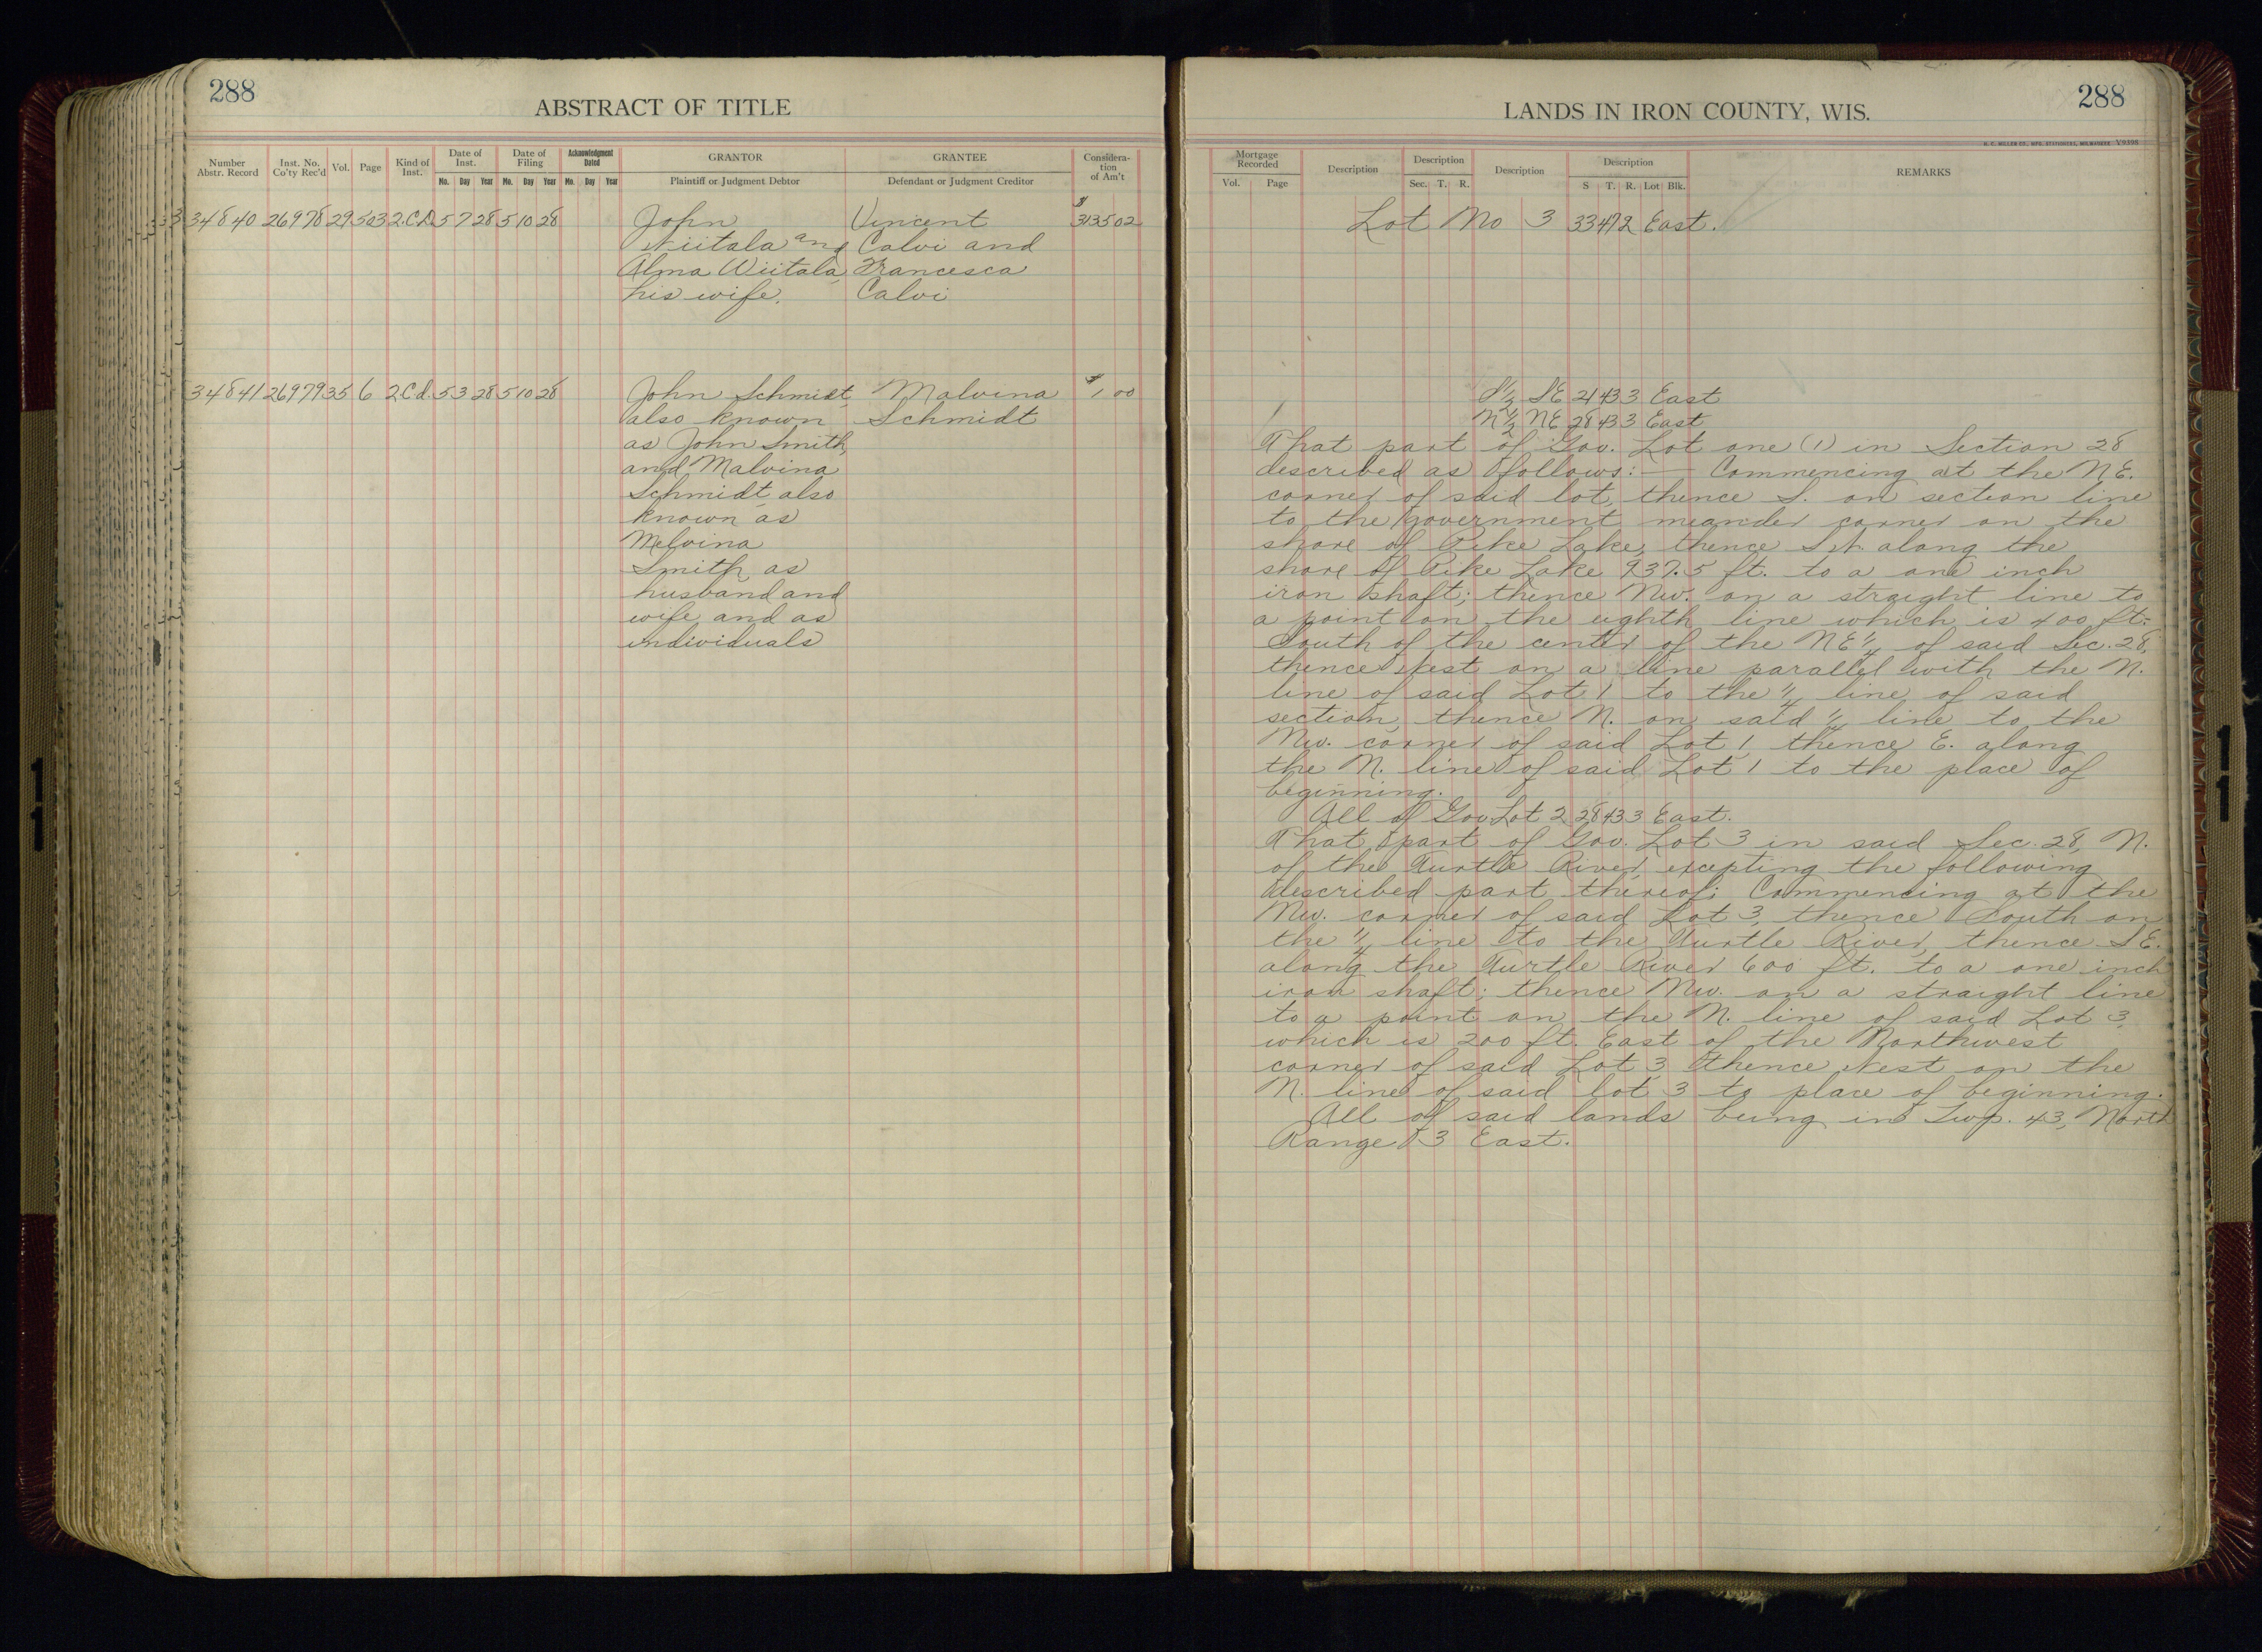 288
ABSTRACT OF TITLE
Number Abstr. Record
Inst. No. Co'ty Rec'd
Vol.
Page
Kind of Inst.
Date of Inst.
Date of Filing
Acknowledgment Dated
GRANTOR
GRANTEE
Considera-tion of Am't
Mo. Day Year Mo. Day Year Mo. Day Year
Plaintiff or Judgment Debtor
Defendant or Judgment Creditor
34840 26978 29 503 2.C.D. 5 7 28 5 10 28 John Vincent $ 3135 02
Wiitala and Calvi and
Alma Wiitala, Francesca
his wife. Calvi
34841 26979 35 6 2.C.d. 5 3 28 5 10 28 John Schmidt, Malvina $1 00
also known Schmidt
as John Smith,
and Malvina
Schmidt also
known as
Melvina
Smith, as
husband and
wife and as
individuals
LANDS IN IRON COUNTY, WIS.
288
H. C. MILLER CO., MFG. STATIONERS, MILWAUKEE V9198
Mortgage Recorded
Description
Description
Description
Description
REMARKS
Vol. Page
Sec. T. R.
S T. R. Lot Blk.
Lot No 3 33 47 2 East.
S½ SE 21 43 3 East
N½ NE 28 43 3 East
That part of Gov. Lot one (1) in Section 28
described as follows:— Commencing at the NE.
corner of said lot, thence S. on section line
to the government meander corner on the
shore of Pike Lake, thence SW along the
shore of Pike Lake 937.5 ft. to a one inch
iron shaft; thence Nw. on a straight line to
a point on the eighth line which is 400 ft.
South of the center of the NE¼ of said Sec. 28,
thence West on a line parallel with the N.
line of said Lot 1 to the ¼ line of said
section, thence N. on said ¼ line to the
Nw. corner of said Lot 1, thence E. along
the N. line of said Lot 1 to the place of
beginning.
All of Gov Lot 2 28 43 3 East.
That part of Gov. Lot 3 in said Sec. 28, N.
of the Turtle River, excepting the following
described part thereof: Commencing at the
Nw. corner of said Lot 3, thence South on
the ¼ line to the Turtle River, thence SE.
along the Turtle River 600 ft. to a one inch
iron shaft; thence Nw. on a straight line
to a point on the N. line of said Lot 3,
which is 200 ft. East of the Northwest
corner of said Lot 3, thence West on the
N. line of said lot 3 to place of beginning.
All of said lands being in Twp. 43, North
Range 3 East.